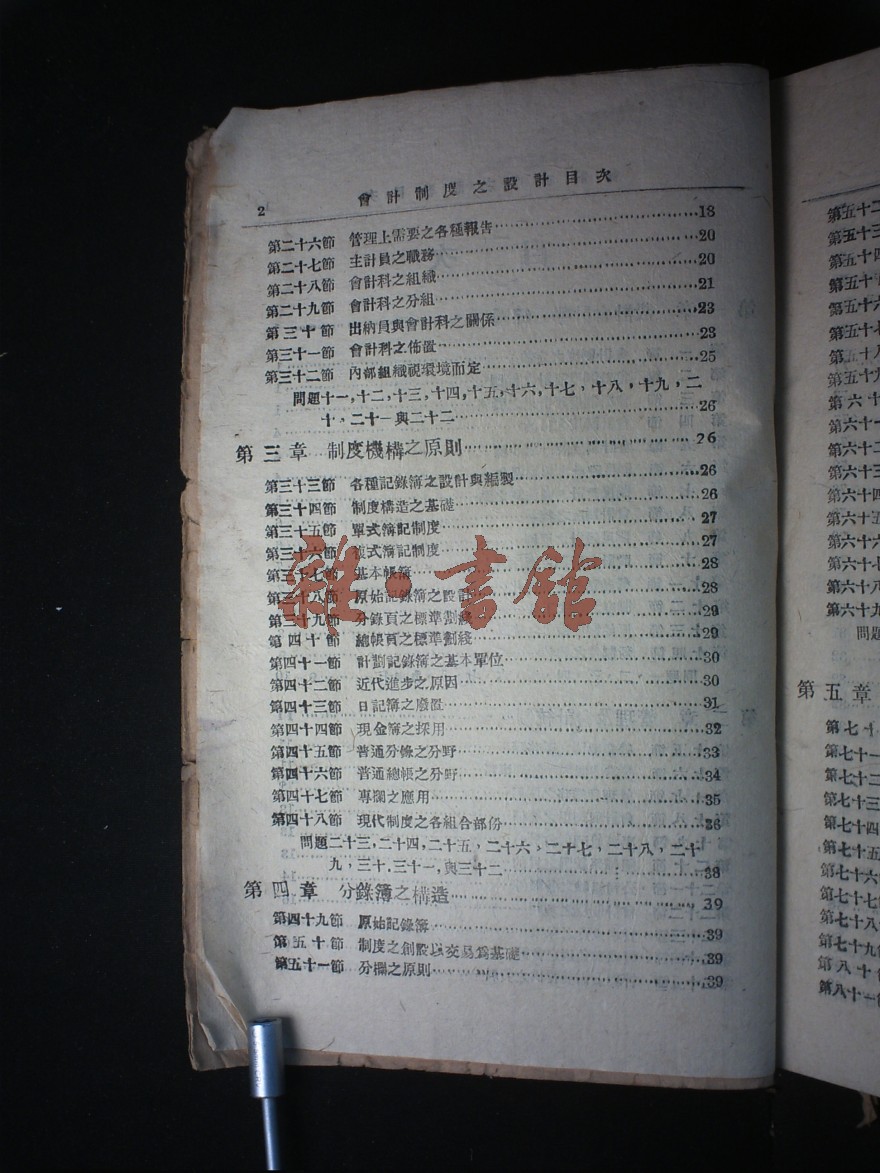 2
會計制度之設計目次
第二十六節 管理上需要之各種報告……18
第二十七節 主計員之職務……20
第二十八節 會計科之組織……20
第二十九節 會計科之分組……21
第三十節 出納員與會計科之關係……23
第三十一節 會計科之佈置……23
第三十二節 內部組織視環境而定……25
問題十一,十二,十三,十四,十五,十六,十七,十八,十九,二
十,二十一與二十二……26
第三章 制度機構之原則……26
第三十三節 各種記錄簿之設計與編製……26
第三十四節 制度構造之基礎……26
第三十五節 單式簿記制度……27
第三十六節 複式簿記制度……27
第三十七節 基本帳簿……28
第三十八節 原始記錄簿之設計……28
第三十九節 分錄頁之標準劃綫……29
第四十節 總帳頁之標準劃綫……29
第四十一節 計劃記錄簿之基本單位……30
第四十二節 近代進步之原因……30
第四十三節 日記簿之廢置……31
第四十四節 現金簿之採用……32
第四十五節 普通分錄之分野……33
第四十六節 普通總帳之分野……34
第四十七節 專欄之應用……35
第四十八節 現代制度之各組合部份……36
問題二十三,二十四,二十五,二十六,二十七,二十八,二十
九,三十,三十一,與三十二……38
第四章 分錄簿之構造……39
第四十九節 原始記錄簿……39
第五十節 制度之創設以交易爲基礎……39
第五十一節 分欄之原則……39
雜·書館
第五十二
第五十三
第五十四
第五十
第五十六
第五十七
第五十八
第五十九
第六十
第六十一
第六十二
第六十三
第六十四
第六十五
第六十六
第六十七
第六十八
第六十九
問題
第五章
第七十
第七十一
第七十二
第七十三
第七十四
第七十五
第七十六
第七十七
第七十八
第七十九
第八十
第八十一